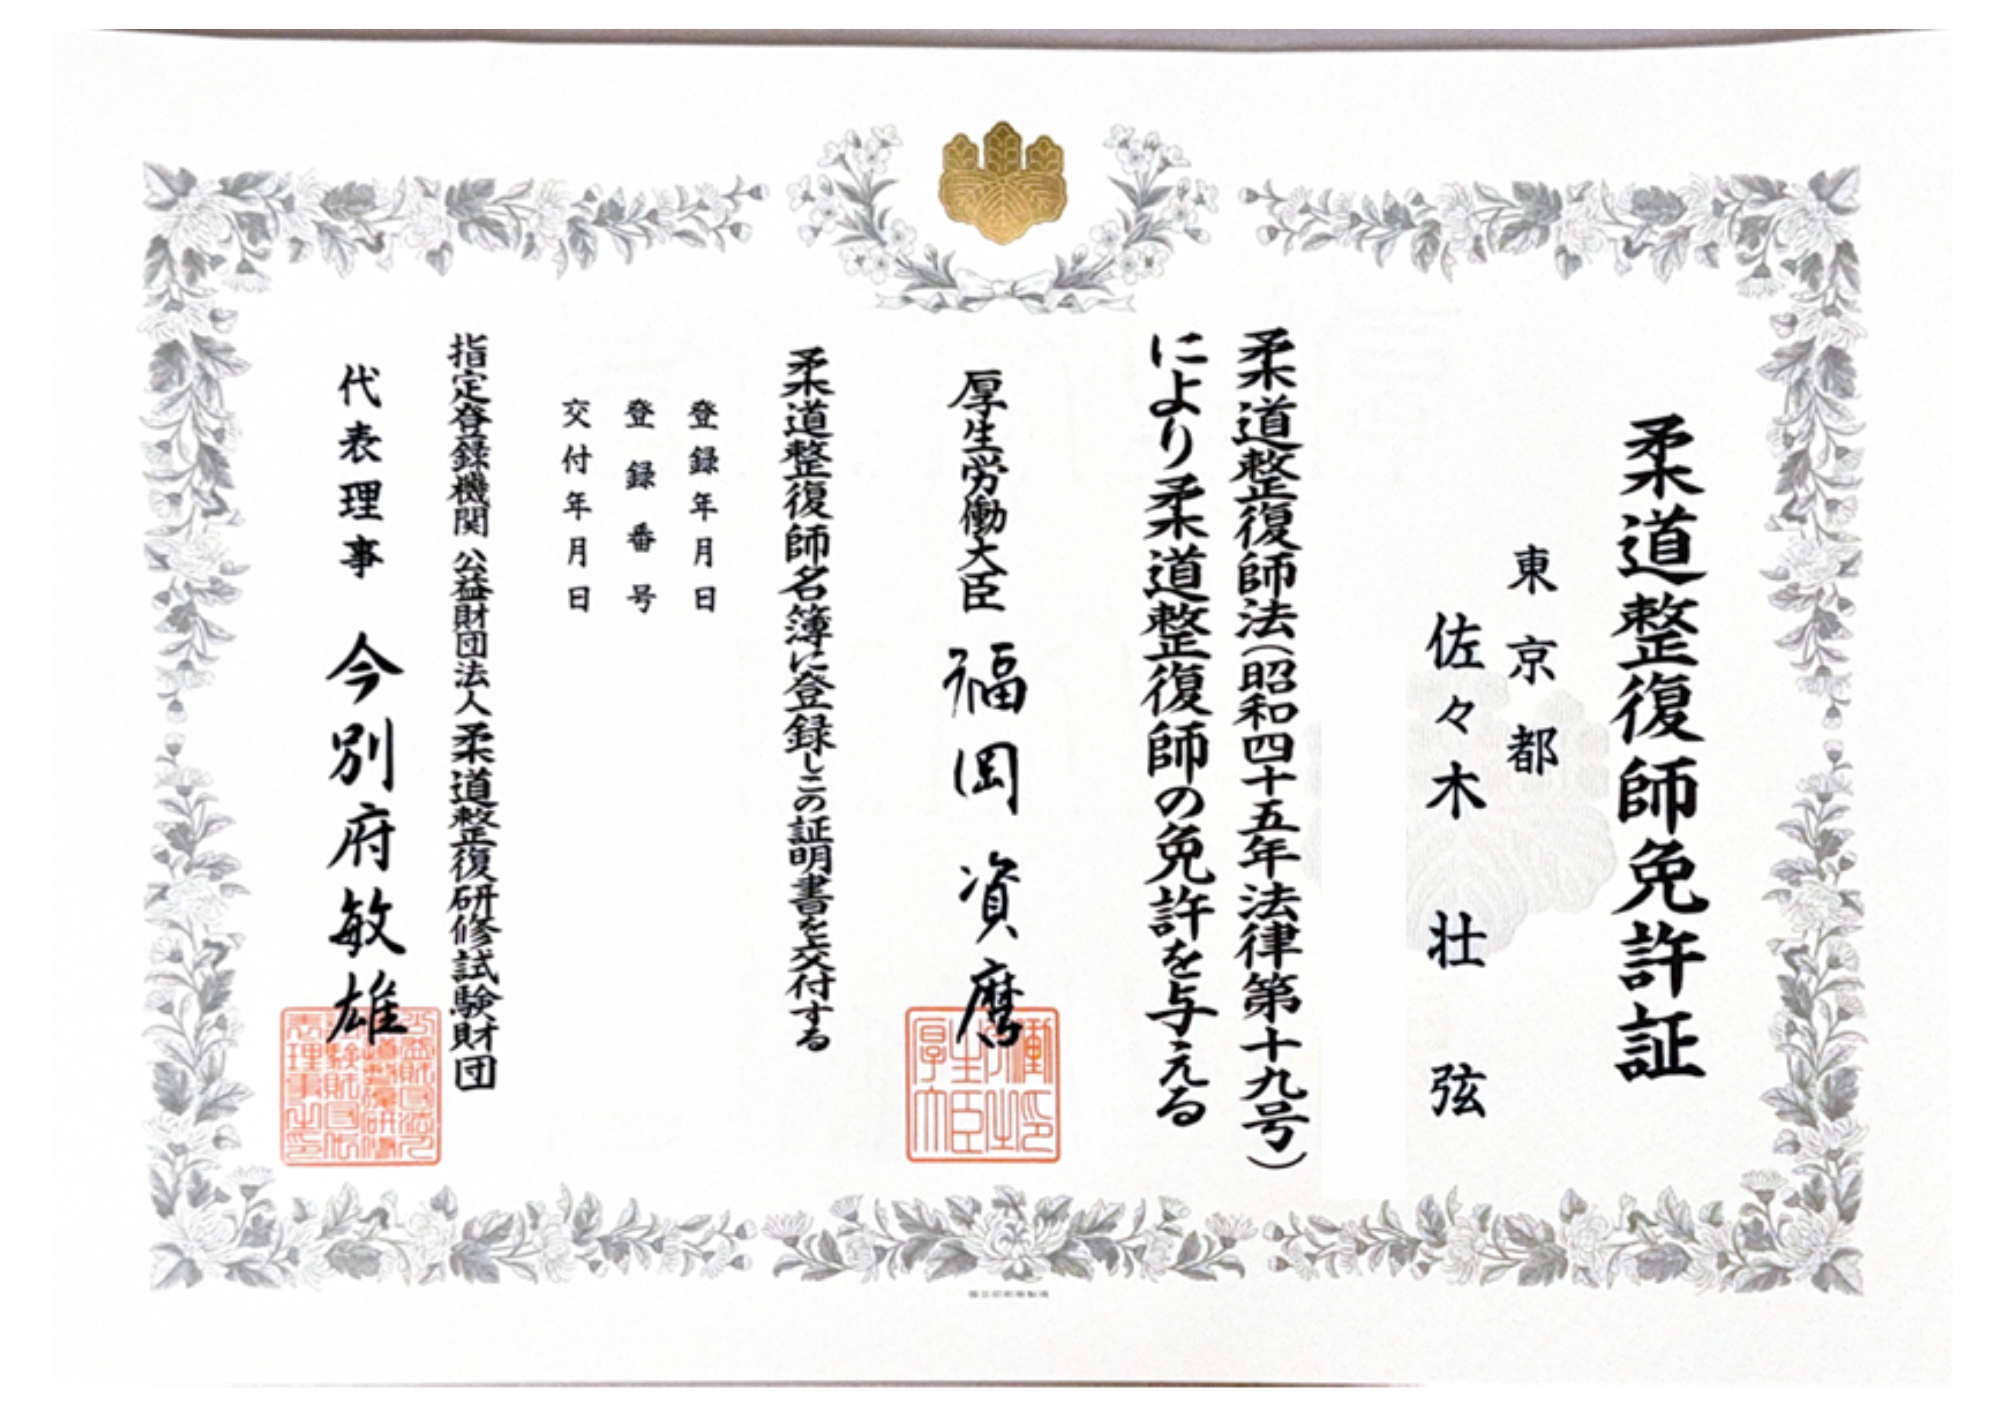 柔道整復師免許証
東京都
佐々木 壮 弦
柔道整復師法(昭和四十五年法律第十九号)
により柔道整復師の免許を与える
厚生労働大臣 福岡資麿
柔道整復師名簿に登録しこの証明書を交付する
登録年月日
登録番号
交付年月日
指定登録機関 公益財団法人柔道整復研修試験財団
代表理事 今別府敏雄